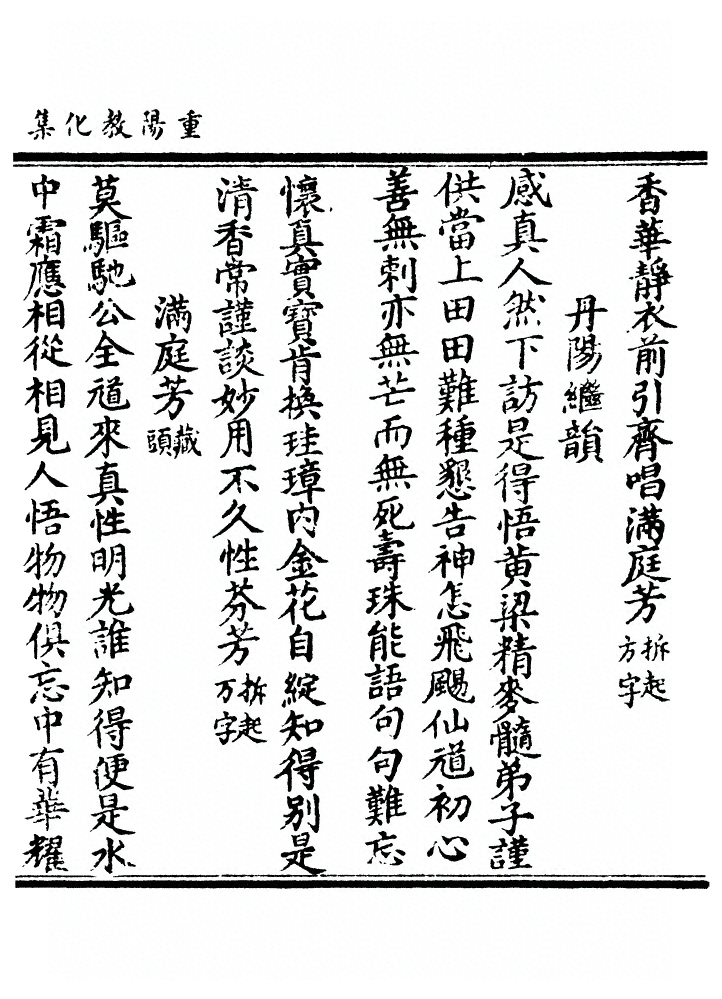 重陽教化集
香華靜衣前引齊唱滿庭芳拆起方字
丹陽繼韻
感真人然下訪是得悟黄梁精麥髓弟子謹
供當上田田難種懇告神怎飛颺仙道初心
善無刺亦無芒而無死壽珠能語句句難忘
懷真實寳肯換珪璋内金花自綻知得别是
清香常謹談妙用不久性芬芳拆起万字
滿庭芳藏頭
莫驅馳公全道來真性明光誰知得便是水
中霜應相從相見人悟物物俱忘中有華耀